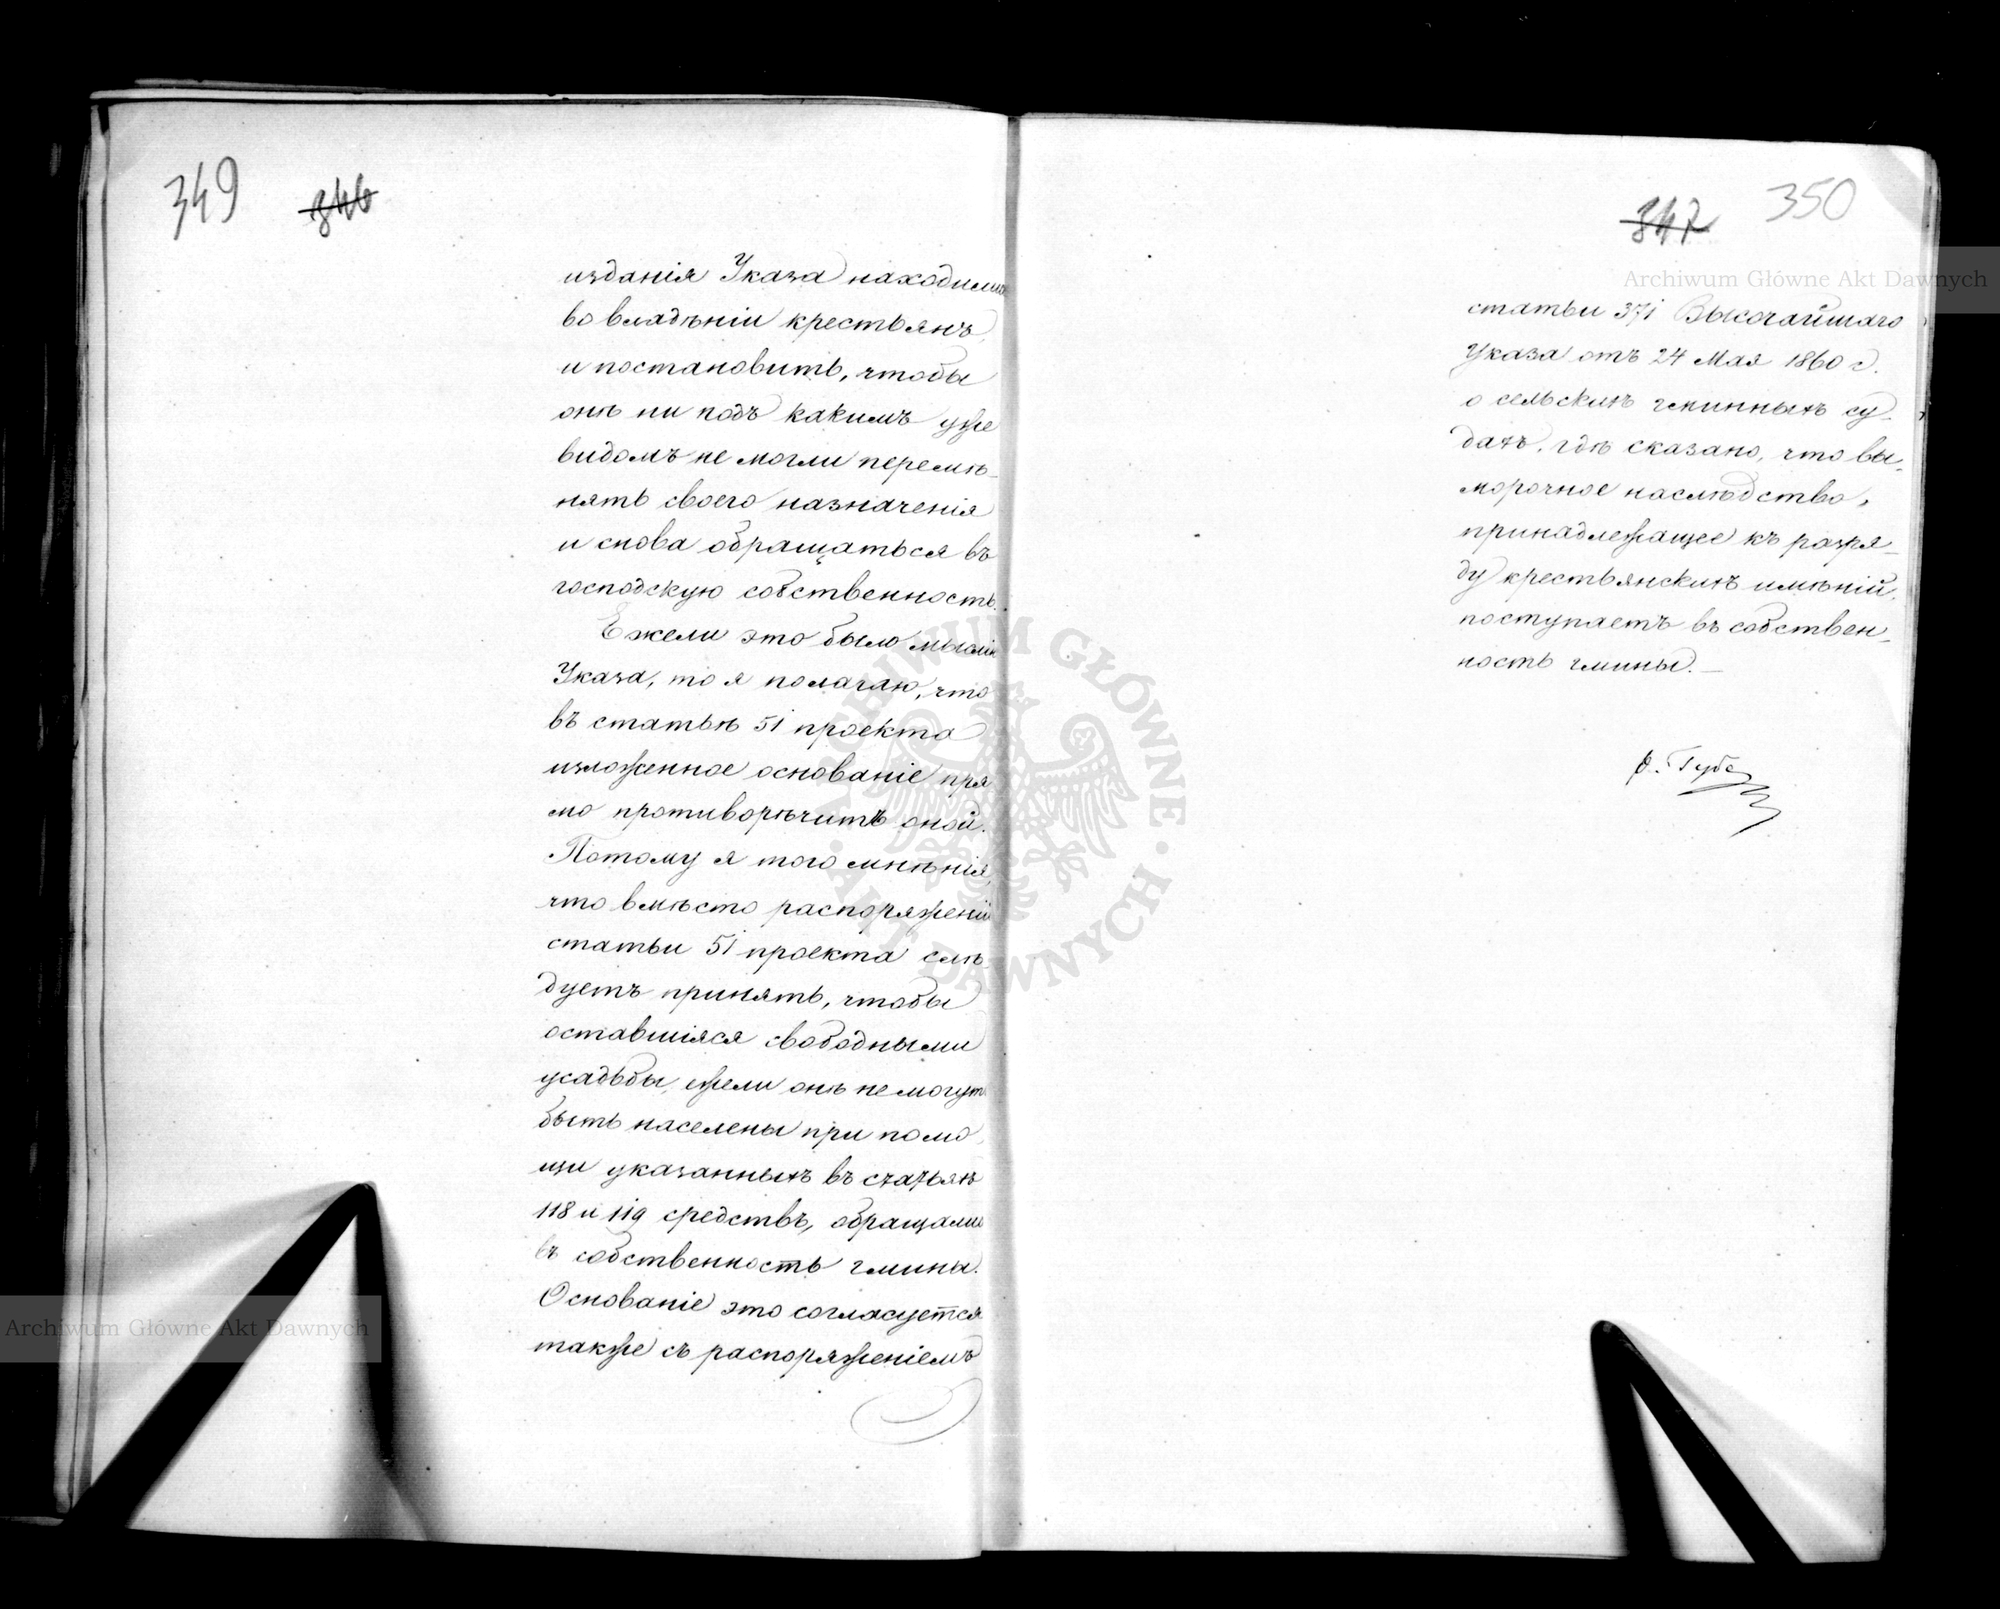 349 346
изданія Указа находились
во владѣніи крестьянъ,
и постановить, чтобы
онѣ ни подъ какимъ уже
видомъ не могли перемѣ-
нять своего назначенія
и снова обращаться въ
господскую собственность.
Ежели это было мыслію
Указа, то я полагаю, что
въ статьѣ 51 проекта
изложенное основаніе пря
мо противорѣчитъ оной.
Потому я того мнѣнія,
что вмѣсто распоряженія
статьи 51 проекта слѣ-
дуетъ принять, чтобы
оставшіяся свободными
усадьбы, ежели онѣ не могутъ
быть населены при помо
щи указанныхъ въ статьяхъ
118 и 119 средствъ, обращались
въ собственность гмины.
Основаніе это согласуется
также съ распоряженіемъ
347 350
статьи 371 Высочайшаго
Указа отъ 24 Мая 1860 г.
о сельскихъ гминныхъ су-
дахъ, гдѣ сказано, что вы-
морочное наслѣдство,
принадлежащее къ разря-
ду крестьянскихъ имѣній,
поступаетъ въ собствен-
ность гмины.—
Р. Губе
Archiwum Główne Akt Dawnych
Archiwum Główne Akt Dawnych
ARCHIWUM GŁÓWNE · AKT DAWNYCH ·